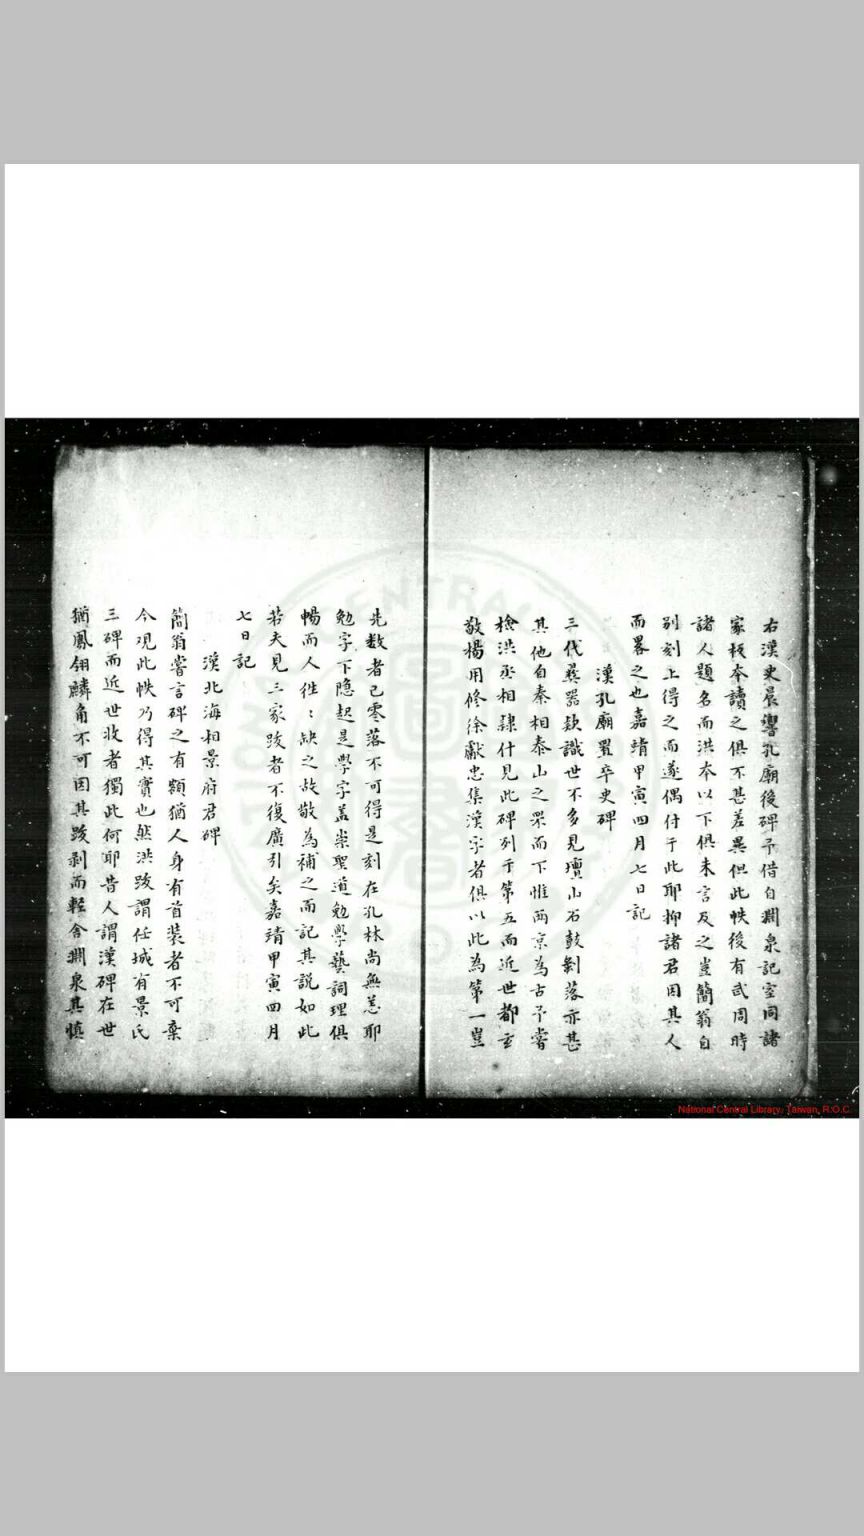 右漢史晨饗孔廟後碑予借自淵泉記室同諸
家板本讀之俱不甚差異但此帙後有武周時
諸人題名而洪本以下俱未言及之豈簡翁自
別刻上得之而遂偶付于此耶抑諸君因其人
而畧之也嘉靖甲寅四月七日記
漢孔廟置卒史碑
三代彞器欵識世不多見壇山石鼓剝落亦甚
其他自秦相泰山之眔而下惟两京為古予嘗
檢洪丞相隷什見此碑列于第五而近世都玄
敬楊用修徐獻忠集漢字者俱以此為第一豈
先数者已零落不可得是刻在孔林尚無恙耶
勉字下隐起是學字盖崇聖道勉學藝詞理俱
暢而人徃〻缺之故敬為補之而記其説如此
若夫見三家跋者不復廣引矣嘉靖甲寅四月
七日記
漢北海相景府君碑
簡翁嘗言碑之有額猶人身有首装者不可棄
今观此帙乃得其實也然洪跋謂任城有景氏
三碑而近世收者獨此何耶昔人謂漢碑在世
猶鳳翎麟角不可因其跋剥而輕舍淵泉其慎
National Central Library, Taiwan, R.O.C